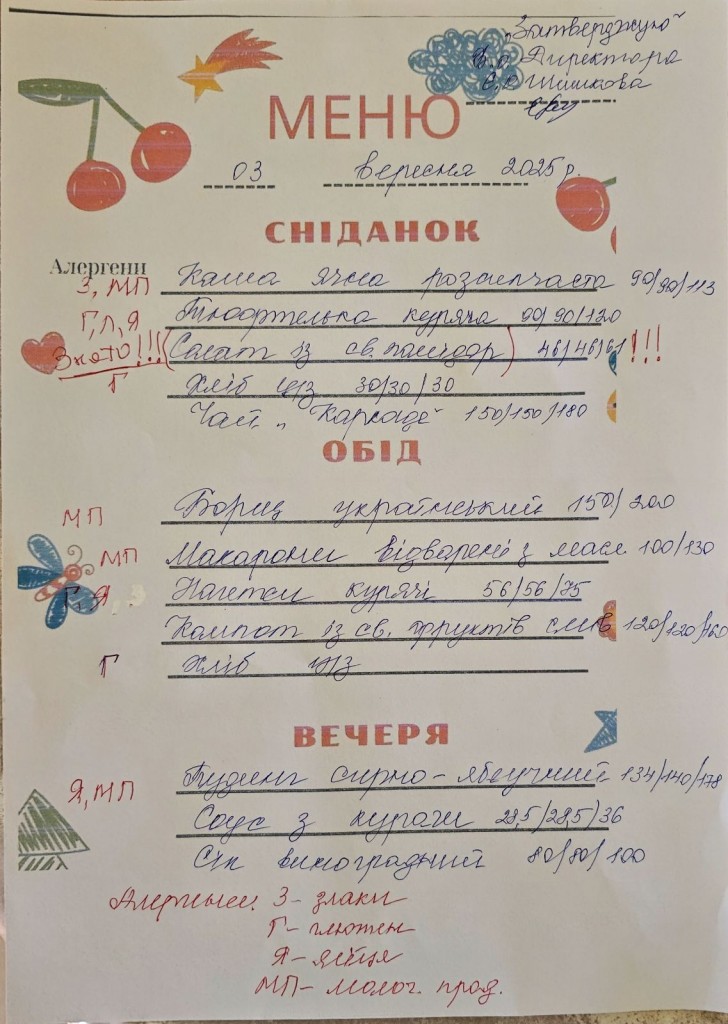 „Затверджую"
В.о. Директора
Є.Є Шишкова
МЕНЮ
03 вересня 2025 р.
СНІДАНОК
Алергени
З, МП Каша ячна розсипчаста 90/90/113
Г, Л, Я Тюфтелька куряча 90/90/120
Знято!!! (Салат із св. помідор) 46/46/61 !!!
Г Хліб ц/з 30/30/30
Чай „Каркаде" 150/150/180
ОБІД
МП Борщ український 150/200
МП Макарони відварені з масл. 100/130
Г, Я Нагетси курячі 56/56/75
Компот із св. фруктів слив 120/120/160
Г Хліб ц/з
ВЕЧЕРЯ
Я, МП Пудинг сирно-яблучний 134/140/178
Соус з кураги 28,5/28,5/36
Сік виноградний 80/80/100
Алергени: З - злаки
Г - глютен
Я - яйця
МП - молоч. прод.